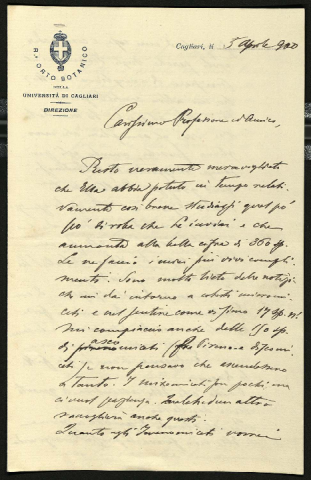 R. ORTO BOTANICO
DELLA
UNIVERSITÀ DI CAGLIARI
DIREZIONE
Cagliari, li 5 Aprile 900
Carissimo Professore ed Amico,
Resto veramente meravigliato
che Ella abbia potuto in tempo relati
vamente così breve studiarsi quel po'
po' di roba che le inviai e che
aumenta alla bella cifra di 360 sp.
Le ne faccio i miei più vivi compli
menti. Sono molto lieto delle notizie
che mi dà intorno a cotesti micromi
ceti e nel sentire come vi siano 17 sp. n.
Mi compiaccio anche delle 150 sp.
di ascomiceti
ceti) e non pensavo che
a tanto. I mixomiceti son pochi ma
ci vuol pazienza. un altro
raccoglierà anche questi.
Quanto agli Imenomiceti vorrei